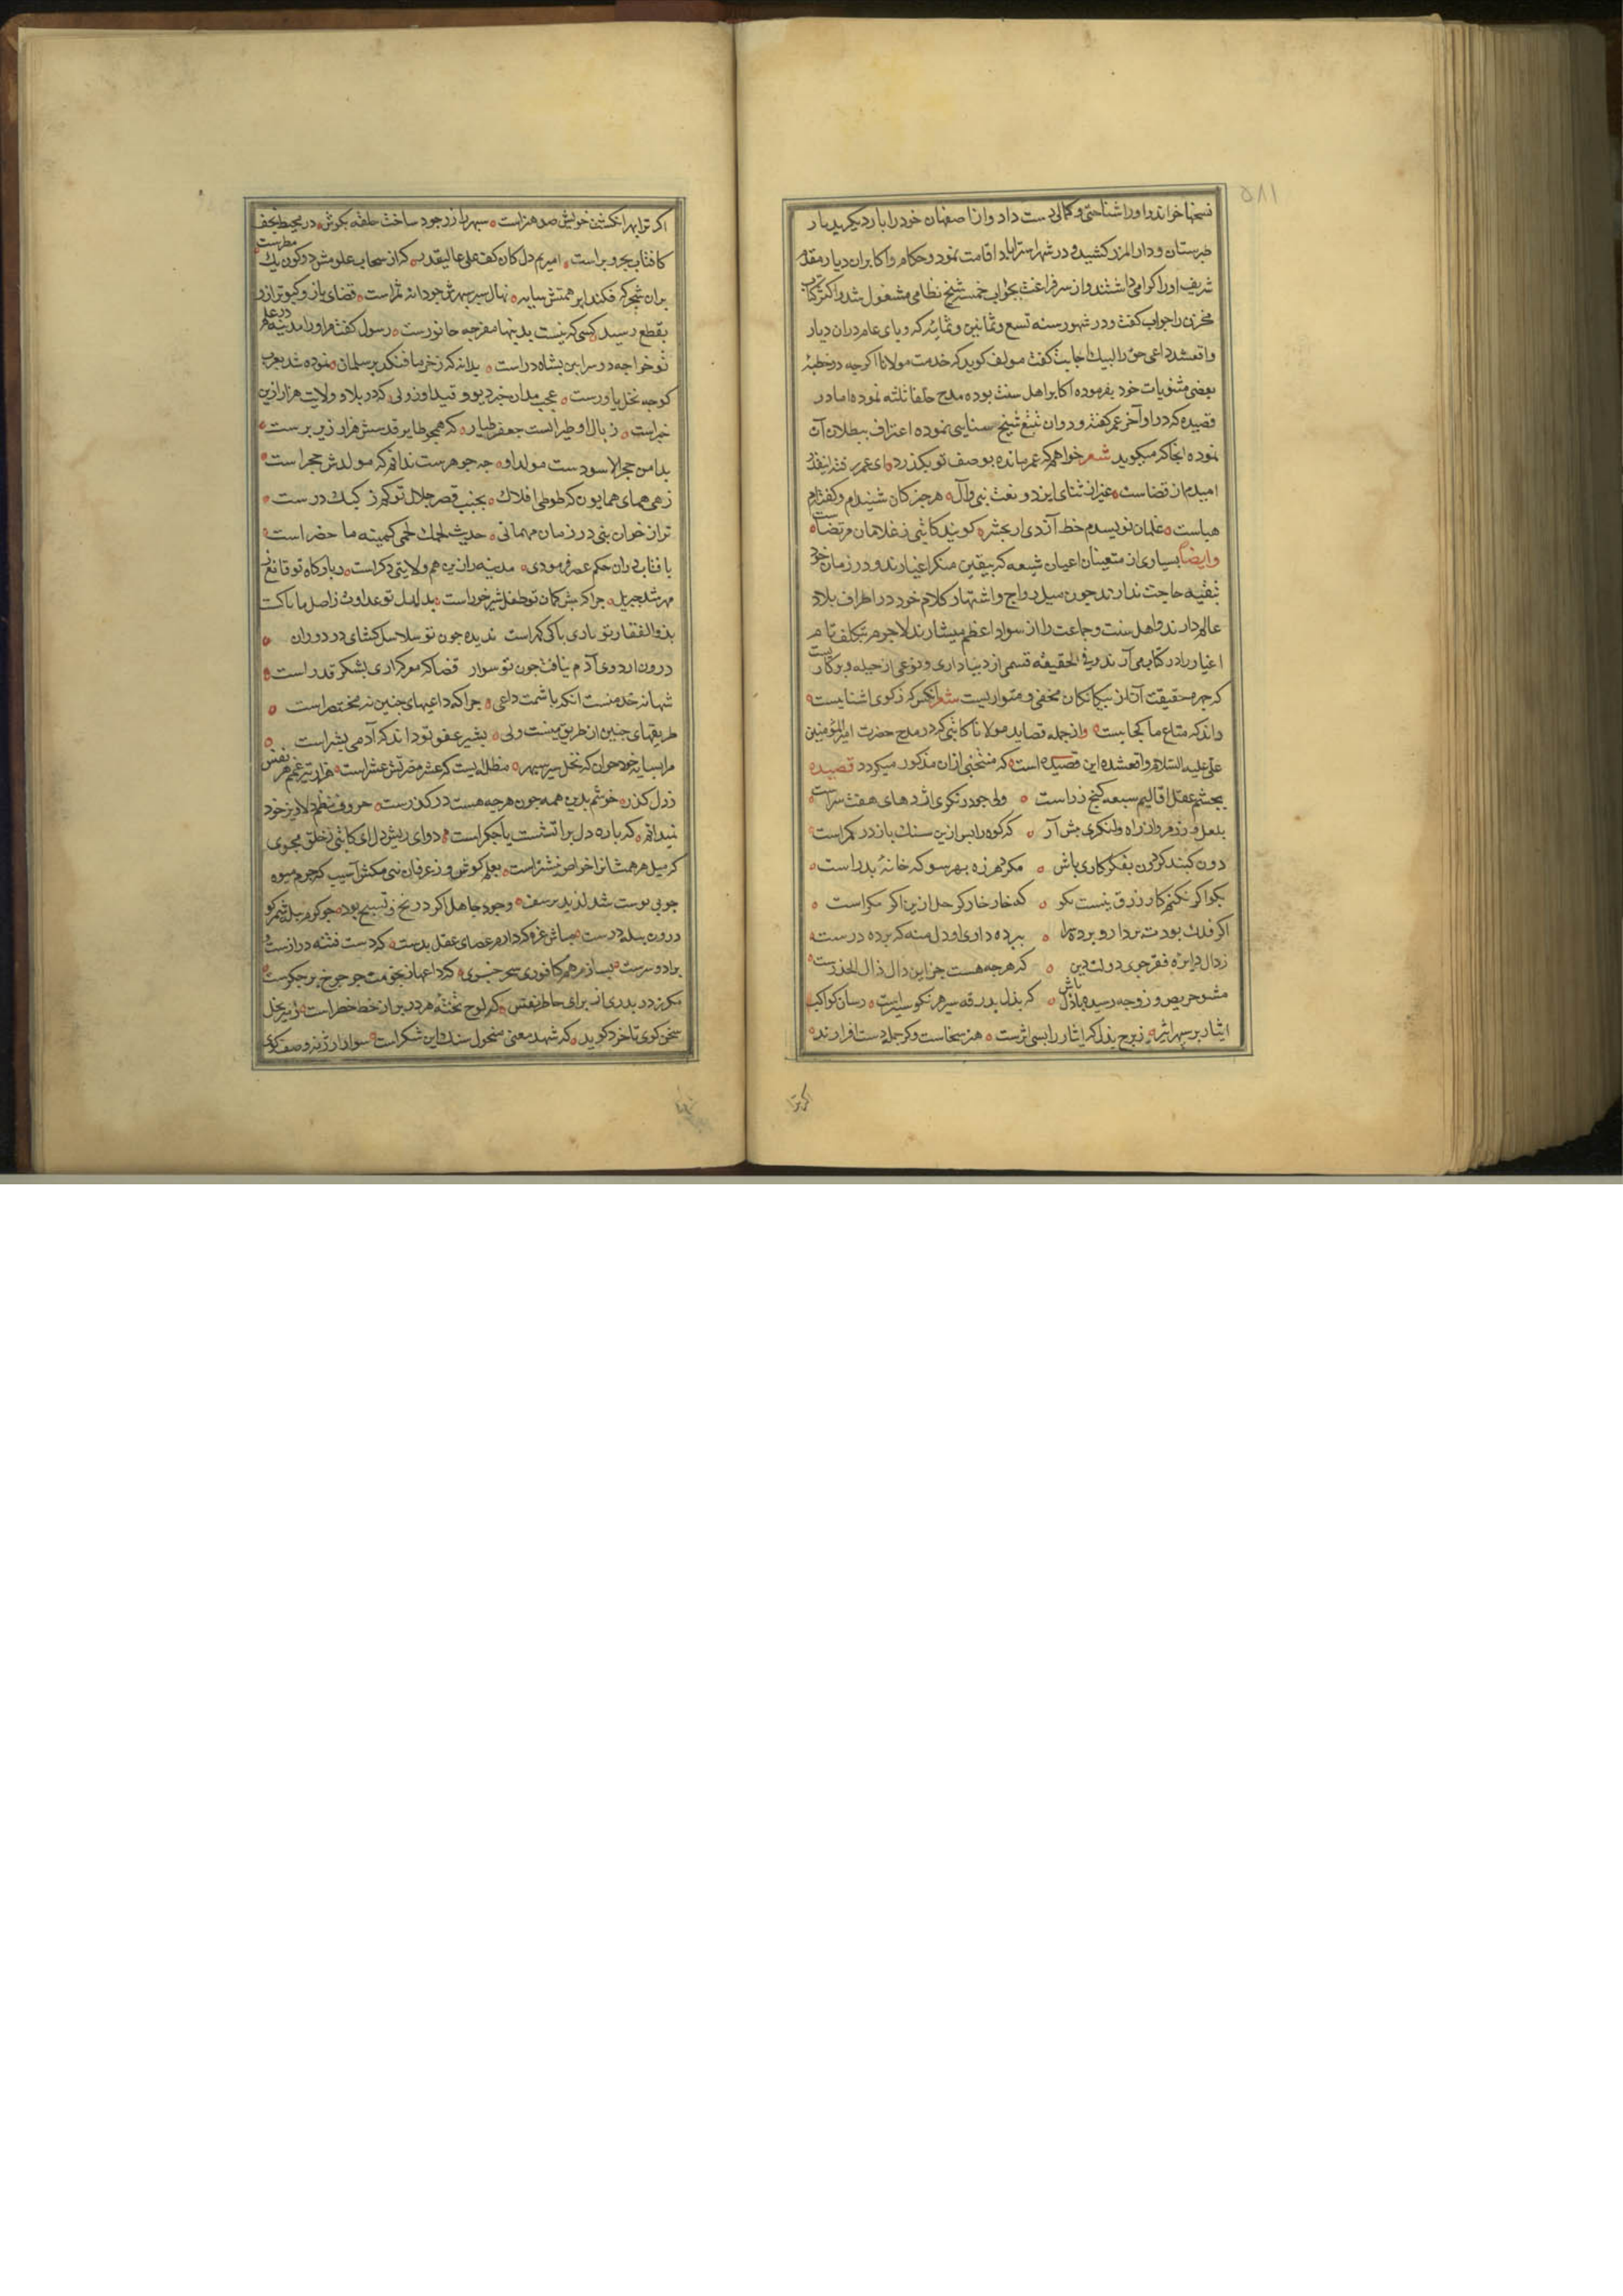 ۵۸۱
نسخها خواند و او را شناختی و کمالی دست داد و از اصفهان خود را بار دیگر بدیار
طبرستان و دار المرز کشید و در شهر استراباد اقامت نمود و حکام و اکابر ان دیار مقدم
شریف او را گرامی داشتند و از سر فراغت بجواب خمسه شیخ نظامی مشغول شد و اکثر کتاب
مخزن را جواب کفت و در شهور سنه تسع و ثمانین و ثمانیه که وبای عام در ان دیار
واقع شد داعی حق را لبیک اجابت کفت مولف کوید که خدمت مولانا اکرچه در خطبه
بعضی مثنویات خود بفرموده اکابر اهل سنت بوده مدح خلفا ثلثه نموده اما در
قصیده که در اواخر عمر کفته و در ان تتبع شیخ سنایی نموده اعتراف ببطلان آن
نموده انجا که میکوید شعر خواهم که عمر مانده بوصف تو بکذرد ای عمر رفته اینقدر
امیدم از قضاست غیر از ثنای ایزد و نعت نبی و آل هر جز کان شنیدام و کفته‌ام
هباست غلمان نویسدم خط آزدی ار بحشر کویند کاتبی ز غلامان مرتضاست
وایضا بسیاری از متعینان اعیان شیعه که بیقین منکر اغیارند و در زمان خود
بتقیه حاجت ندارند چون میل رواج و اشتهار کلام خود در اطراف بلاد
عالم دارند و اهل سنت و جماعت را از سواد اعظم میشمارند لاجرم بتکلف نام
اغیار را در کتاب می آرند و فی الحقیقه قسمی از دنیاداری و نوعی از حیله و پرکاریست
که چهره حقیقت آن از بیکانکان مخفی و متواریست شعر انکس که ز کوی اشناییست
داند که متاع ما کجاییست و از جمله قصاید مولانا کاتبی که در مدح حضرت امیرالمؤمنین
علی علیه السلام واقع شده این قصیده است که منتخبی از ان مذکور میکردد قصیده
بچشم عقل اقالیم سبعه کنج زر است ولی چو در نکری اژدهای هفت سر است
بلعل و زر مرو از راه و لنکری پیش آر که کوه را بس ازین سنک بار در کمر است
درون کنبد کردون بفکر کاری باش مکرد هرزه بهر سو که خانه پدر است
بکو اکر نکنم کار رزق نیست مکو که خار خار کر حل ازین اکر مکر است
اکر فلک بودت پردار و پرده‌سرا بپرده داری او دل منه که پرده در است
ز دال دایره فقر جوی دولت دین که هرچه هست جز این دال ذال الحذر است
مشو حریص و ز وجه رسیده باذل باش که بذل بدرقه سیر هر نکو سیر است رسان کواکب
ایثار بر سپهر اثیر ز برج بذل که ایثار را بسی اثر است هنر سخاست و کر جمله دست افزارند
اکر ترا
اکر ترا بهر انکشت خویش صد هنر است سپهر را زر جود ساخت حلقه بکوش در محیط نجف
کافتاب بحر و بر است امیر یم دل کان کف علی عالیقدر که از سحاب علومش دو کون یک مطر است
بران شجر که فکند ابر همتش سایه نهال سبز سپهرش چو دانه ثمر است قضای باز و کبوتر ازو
بقطع رسید کسی که نیست بدینها مقر چه جانور است رسول کفت مر او را مدینه در علم
تو خواجه دو سرا بین بشاه در است بدانکه ز خرما فکند بر سلمان نموده شد بعرب
کو چه نخل بارور است عجب مدان خبر دیو و قید او ز ولی که در بلاد ولایت هزار ازین
خبر است ز بال او طیرانست جعفر طیار که همچو طایر قدسش هزار زیر پر است
بدامن حجر الاسود ست مولد او چه جوهر ست ندانم که مولدش حجر است
زهی همای همایون که طوطی افلاک بجنب قصر جلال تو کم ز کبک در ست
ترا ز خوان نبی در زمان مهمانی حدیث لحمک لحمی کمینه ما حضر است
بافتاب دران حکم عصر فرمودی مدینه را زین هم ولایتی دکر است
بذوالفقار تو باری باکی کمر است ندیده چون تو سلاسل کشای در دوران
درون اردوی آدم نیافت چون تو سوار قضا که معرکه داری بلشکر قدر است
شها نه خدمتست انکه باشمت داعی چرا که داعیهای چنین نه مختصر است
طریقهای چنین از طریق نیست ولی بشیر عفو تو داند که آدمی بشر است
مرا بسایه خود خوان که نخل سبز سپهر مظله ایست که عشر مضرتش عشر است هزار تیر غم هر نفس
ز دل کذرد خوشم بدین همه چون هرچه هست در کذر ست حروف نظم دلاویز خود
نمیدانم که پاره دل بر آتشست یا جکر است دوای ریش دل ای کاتبی ز خلق مجوی
که میل مرهمشان را خواص نیشتر است بعلم کوش و ز عرفان نئی مکش آسیب که جرم میوه
چو بی پوست شد لذیذ تر ست وجود جاهل اکر در نخ و نسیج بود چو کرم پیله شمر کو
درون پیله در ست مباش غره که دارم عصای عقل بدست که دست فتنه دراز ست و
سخن کوی تا خرد کوید که شهد معنی منحول سنک و این شکر است